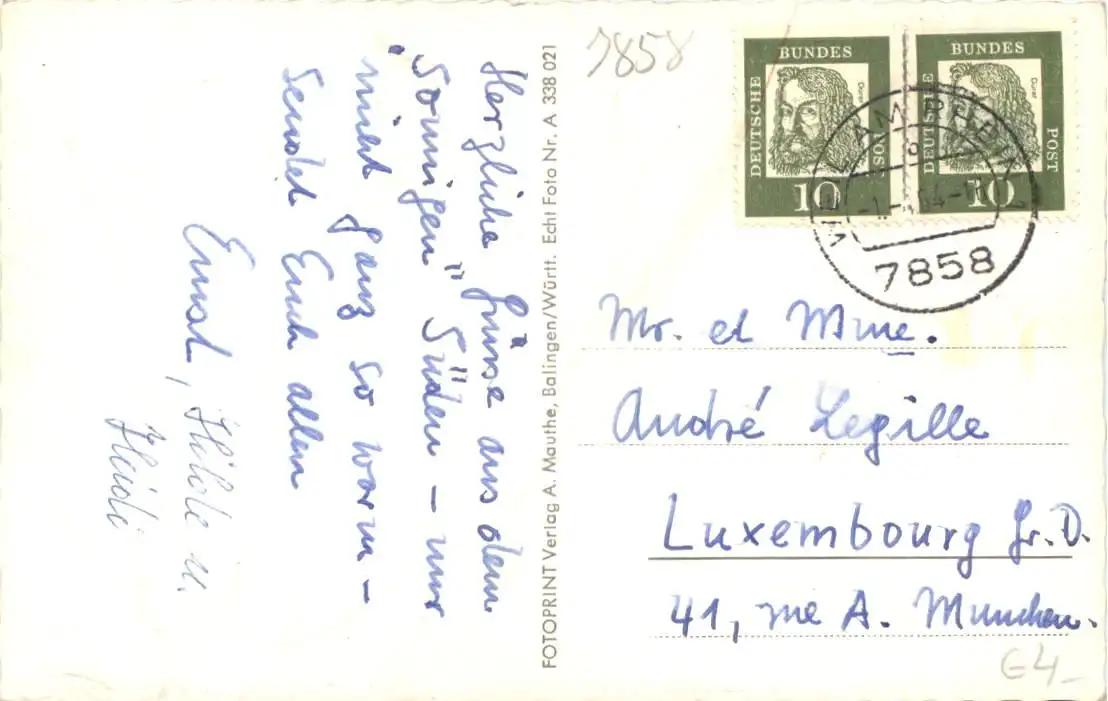 Herzliche Grüsse aus dem
"Sonnigen" Süden – nur
nicht ganz so warm –
Sendet Euch allen
Ernst, Hilde u.
Heidi
FOTOPRINT Verlag A. Mauthe, Balingen/Württ. Echt Foto Nr. A 338 021
7858
DEUTSCHE BUNDES POST
Dürer
10
DEUTSCHE BUNDES POST
Dürer
10
WEIL AM RHEIN
7858
Mr. et Mme.
André Legille
Luxembourg Gr. D.
41, rue A. Munchen.
€4-